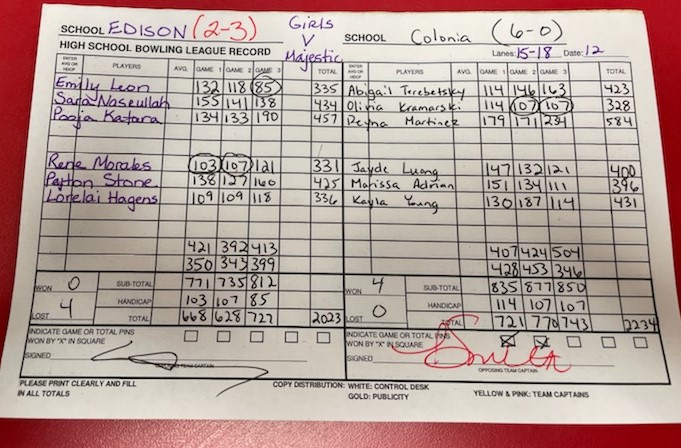 SCHOOL EDISON (2-3) Girls V Majestic SCHOOL Colonia (6-0)
HIGH SCHOOL BOWLING LEAGUE RECORD Lanes: 15-18 Date: 12
ENTER AVG OR HDCP PLAYERS AVG. GAME 1 GAME 2 GAME 3 TOTAL ENTER AVG OR HDCP PLAYERS GAME 1 GAME 2 GAME 3 TOTAL
Emily Leon 132 118 85 335 Abigail Terebetsky 114 146 163 423
Sara Naseullah 155 141 138 434 Olivia Kramarski 114 107 107 328
Pooja Katara 134 133 190 457 Reyna Martinez 179 171 234 584
Rene Morales 103 107 121 331 Jayde Luang 147 132 121 400
Payton Stone 138 127 160 425 Marissa Adrian 151 134 111 396
Lorelai Hagens 109 109 118 336 Kayla Young 130 187 114 431
421 392 413 407 424 504
350 343 399 428 453 346
WON 0 SUB-TOTAL 771 735 812 WON 4 SUB-TOTAL 835 877 850
HANDICAP 103 107 85 HANDICAP 114 107 107
LOST 4 TOTAL 668 628 727 2023 LOST 0 TOTAL 721 770 743 2234
INDICATE GAME OR TOTAL PINS WON BY "X" IN SQUARE INDICATE GAME OR TOTAL PINS WON BY "X" IN SQUARE X X
SIGNED SIGNED
OPPOSING TEAM CAPTAIN OPPOSING TEAM CAPTAIN
PLEASE PRINT CLEARLY AND FILL COPY DISTRIBUTION: WHITE: CONTROL DESK YELLOW & PINK: TEAM CAPTAINS
IN ALL TOTALS GOLD: PUBLICITY